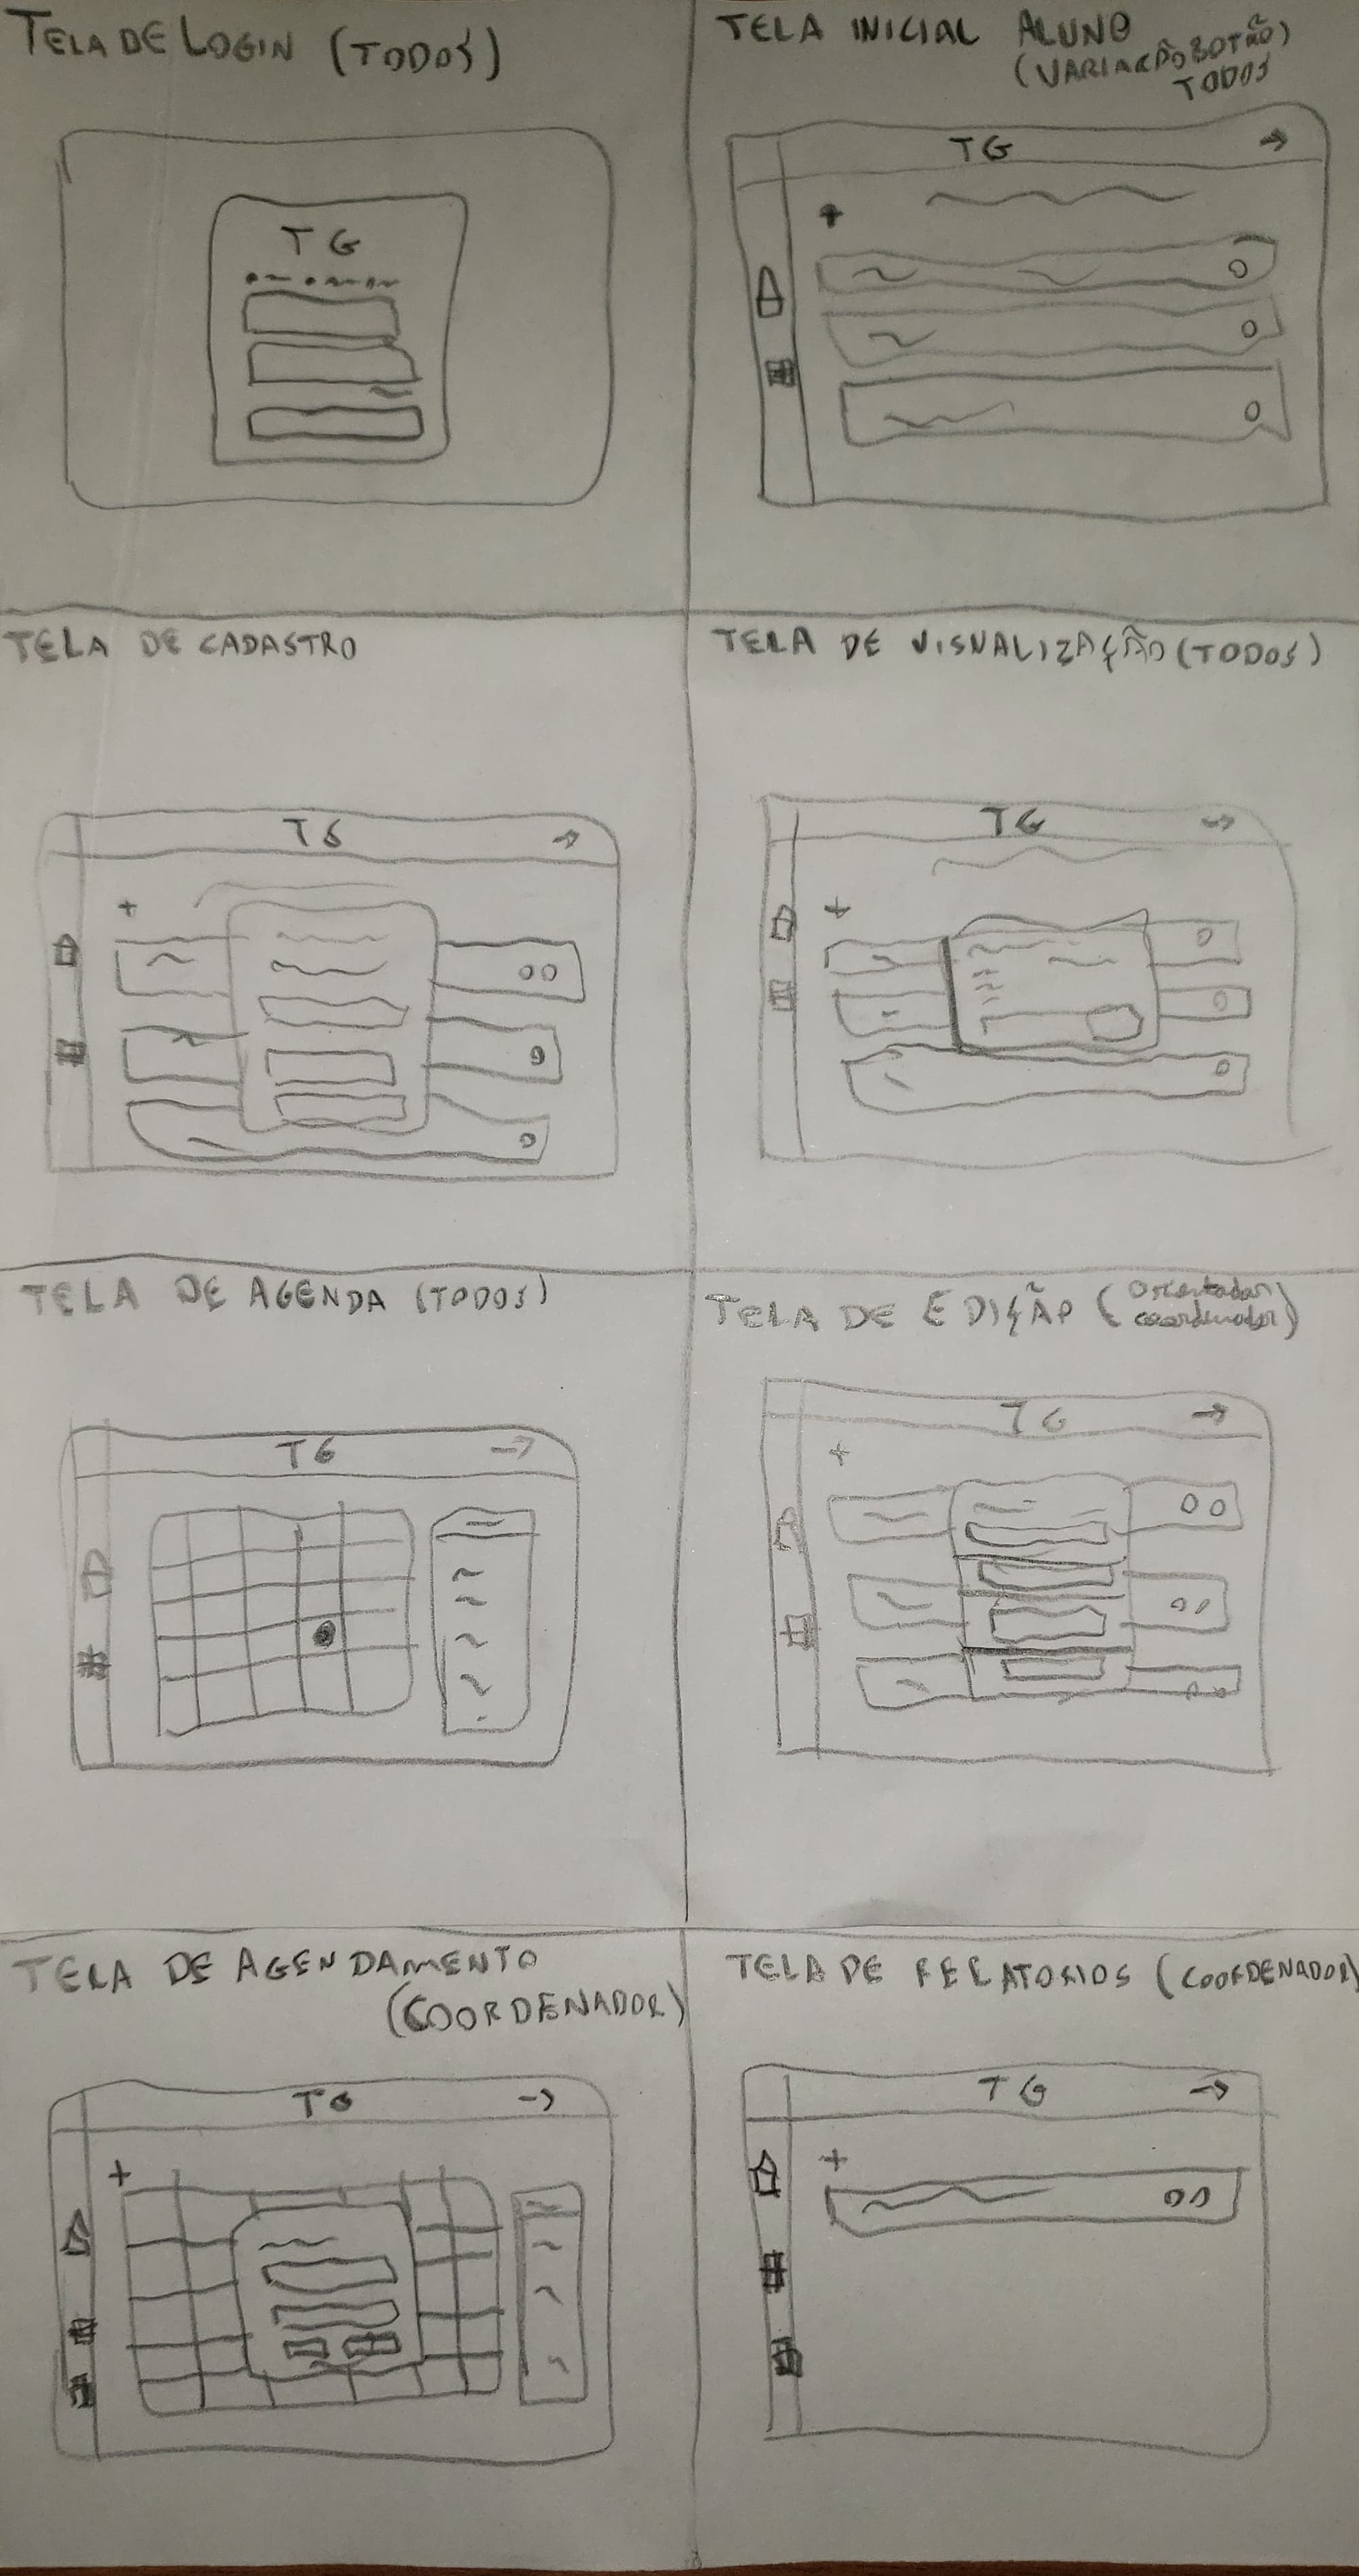 TELA DE LOGIN (TODOS)
TG
TELA INICIAL ALUNO
(VARIAÇÃO BOTÃO)
TODOS
TG
TELA DE CADASTRO
TG
TELA DE VISUALIZAÇÃO (TODOS)
TG
TELA DE AGENDA (TODOS)
TG
TELA DE EDIÇÃO (Orientador
coordenador)
TG
TELA DE AGENDAMENTO
(COORDENADOR)
TG
TELA DE RELATORIOS (COORDENADOR)
TG